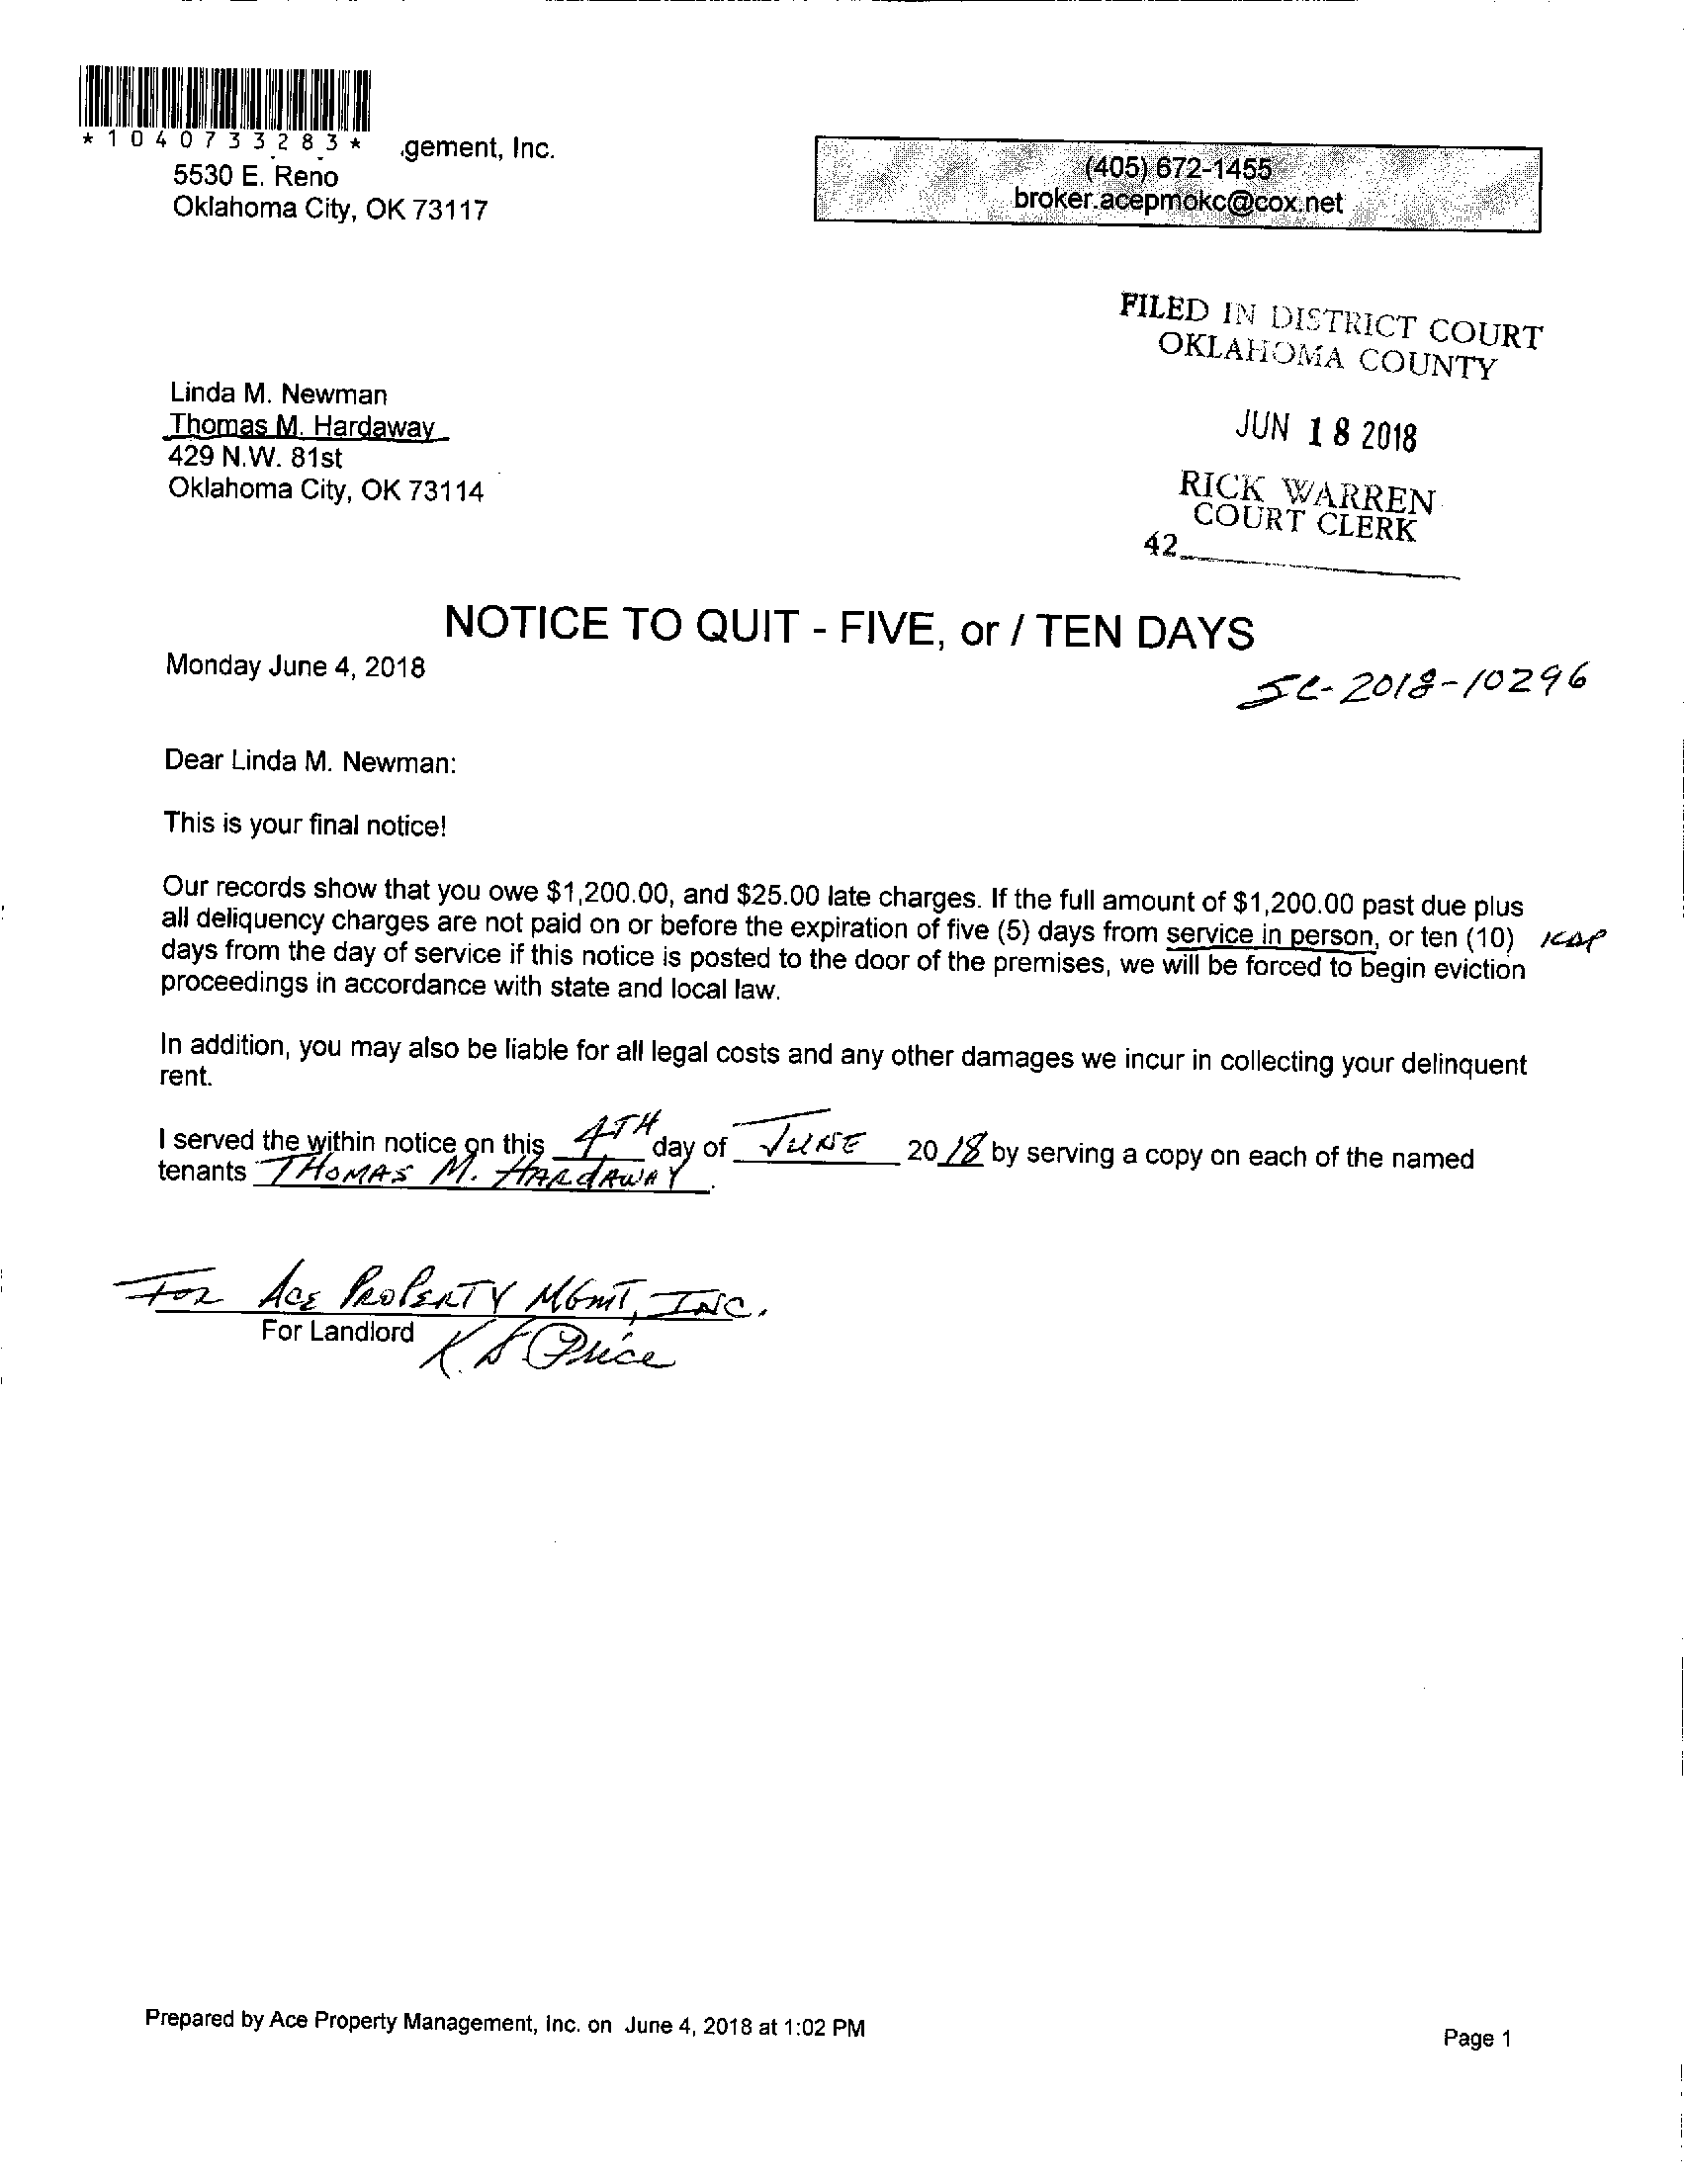 *1040733283*
gement, Inc.
5530 E. Reno
Oklahoma City, OK 73117
(405) 672-1455
broker.acepmokc@cox.net
FILED IN DISTRICT COURT
OKLAHOMA COUNTY
JUN 18 2018
RICK WARREN
COURT CLERK
42
Linda M. Newman
Thomas M. Hardaway
429 N.W. 81st
Oklahoma City, OK 73114
NOTICE TO QUIT - FIVE, or / TEN DAYS
Monday June 4, 2018
SC-2018-10296
Dear Linda M. Newman:
This is your final notice!
Our records show that you owe $1,200.00, and $25.00 late charges. If the full amount of $1,200.00 past due plus
all deliquency charges are not paid on or before the expiration of five (5) days from service in person, or ten (10)
days from the day of service if this notice is posted to the door of the premises, we will be forced to begin eviction
proceedings in accordance with state and local law.
In addition, you may also be liable for all legal costs and any other damages we incur in collecting your delinquent
rent.
I served the within notice on this 4TH day of JUNE 2018 by serving a copy on each of the named
tenants THOMAS M. HARDAWAY.
FOR ACE PROPERTY MGMT, INC.
For Landlord
K. S Price
Prepared by Ace Property Management, Inc. on June 4, 2018 at 1:02 PM
Page 1